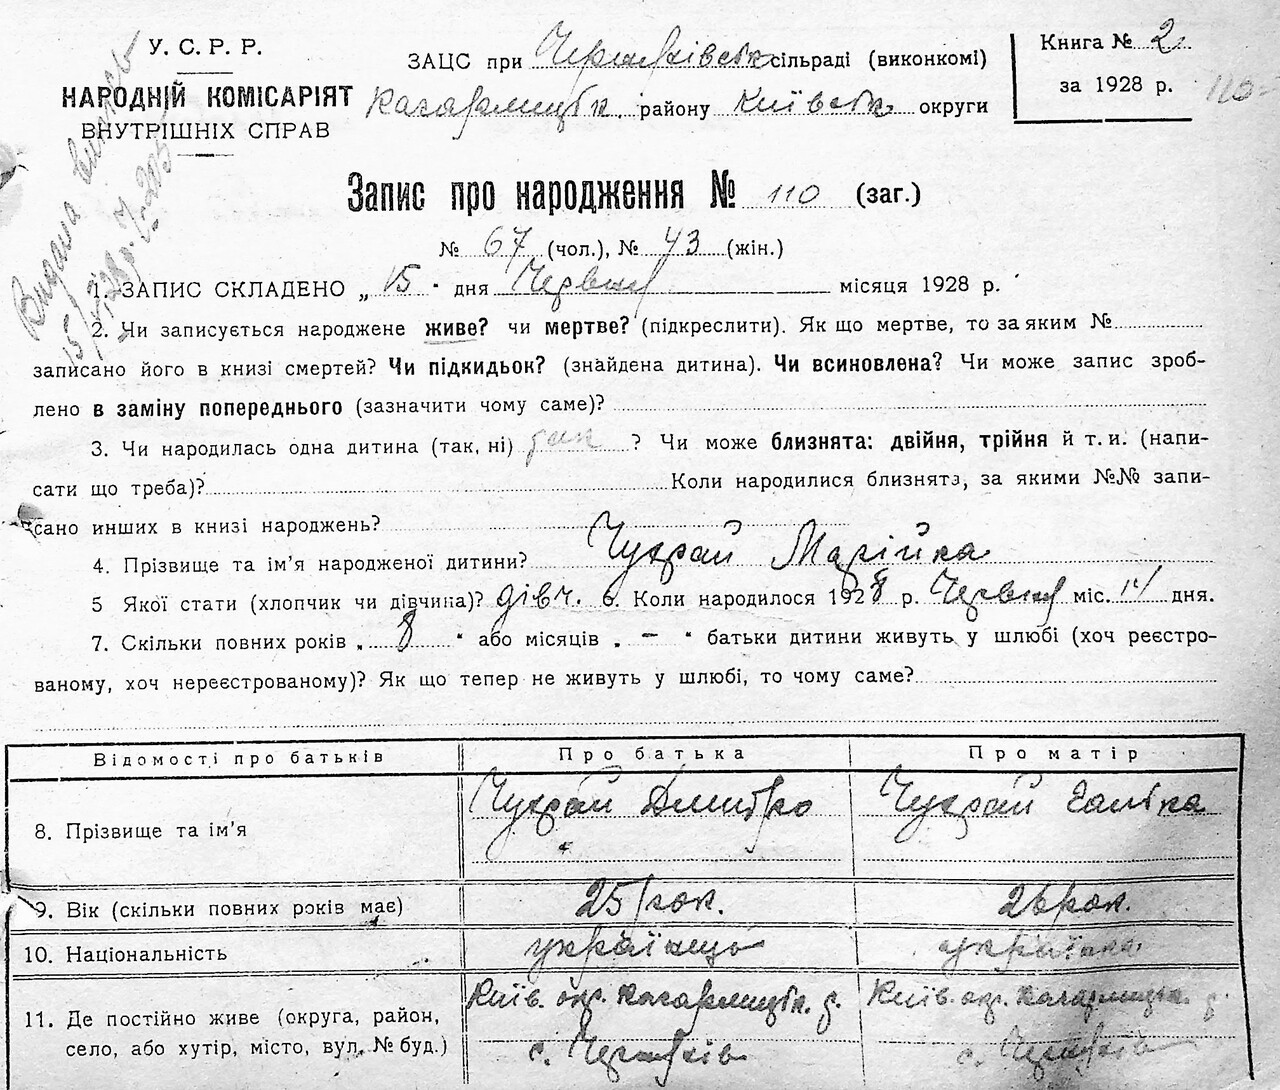 У. С. Р. Р.
НАРОДНІЙ КОМІСАРІЯТ
ВНУТРІШНІХ СПРАВ
ЗАЦС при Черняхівськ сільраді (виконкомі)
Кагарлицьк. району Київськ. округи
Книга № 2
за 1928 р.
110
Видана
Запис про народження № 110 (заг.)
№ 67 (чол.), № 43 (жін.)
1. ЗАПИС СКЛАДЕНО „ 15 " дня Червня місяця 1928 р.
2. Чи записується народжене живе? чи мертве? (підкреслити). Як що мертве, то за яким №
записано його в книзі смертей? Чи підкидьок? (знайдена дитина). Чи всиновлена? Чи може запис зроб-
лено в заміну попереднього (зазначити чому саме)?
3. Чи народилась одна дитина (так, ні) так ? Чи може близнята: двійня, трійня й т. и. (напи-
сати що треба)? Коли народилися близнята, за якими №№ запи-
сано инших в книзі народжень?
4. Прізвище та ім'я народженої дитини? Чухрай Марійка
5 Якої стати (хлопчик чи дівчина)? дівч. 6. Коли народилося 1928 р. Червня міс. 14 дня.
7. Скільки повних років „ 8 " або місяців „ – " батьки дитини живуть у шлюбі (хоч реєстро-
ваному, хоч нереєстрованому)? Як що тепер не живуть у шлюбі, то чому саме?
Відомості про батьків Про батька Про матір
8. Прізвище та ім'я Чухрай Дмитро Чухрай Галька
9. Вік (скільки повних років має) 25 рок. 26 рок.
10. Національність українець українка
11. Де постійно живе (округа, район, Київ. окр. Кагарлицьк. р. Київ. окр. Кагарлицьк. р.
село, або хутір, місто, вул. № буд.) с. Черняхів с. Черняхів